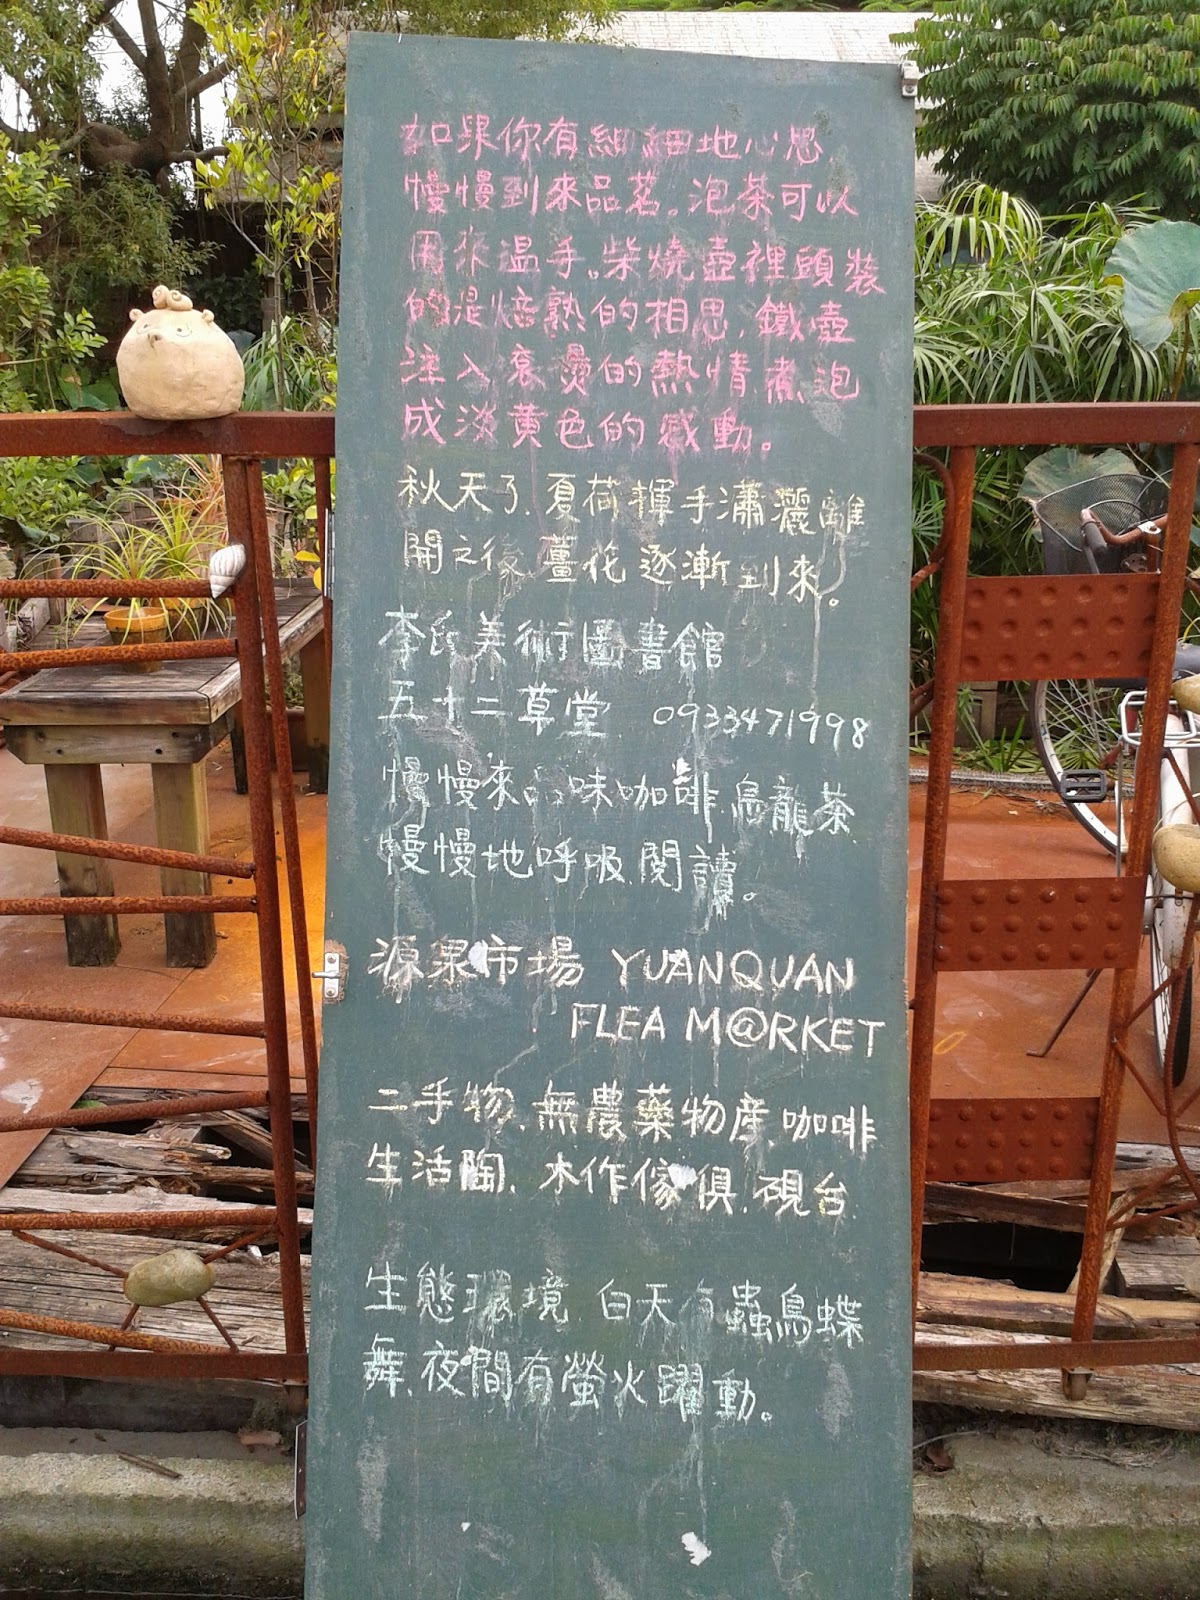 如果你有細細地心思
慢慢到來品茗。泡茶可以
用來溫手。柴燒壺裡頭裝
的是焙熟的相思,鐵壺
注入滾燙的熱情煮泡
成淡黃色的感動。
秋天了,夏荷揮手瀟灑離
開之後薑花逐漸到來。
李氏美術圖書館
五十二草堂 0933471998
慢慢來品味咖啡.烏龍茶
慢慢地呼吸.閱讀。
源泉市場 YUANQUAN
FLEA M@RKET
二手物.無農藥物產.咖啡
生活陶.木作傢俱.硯台
生態環境 白天有蟲鳥蝶
舞.夜間有螢火躍動。